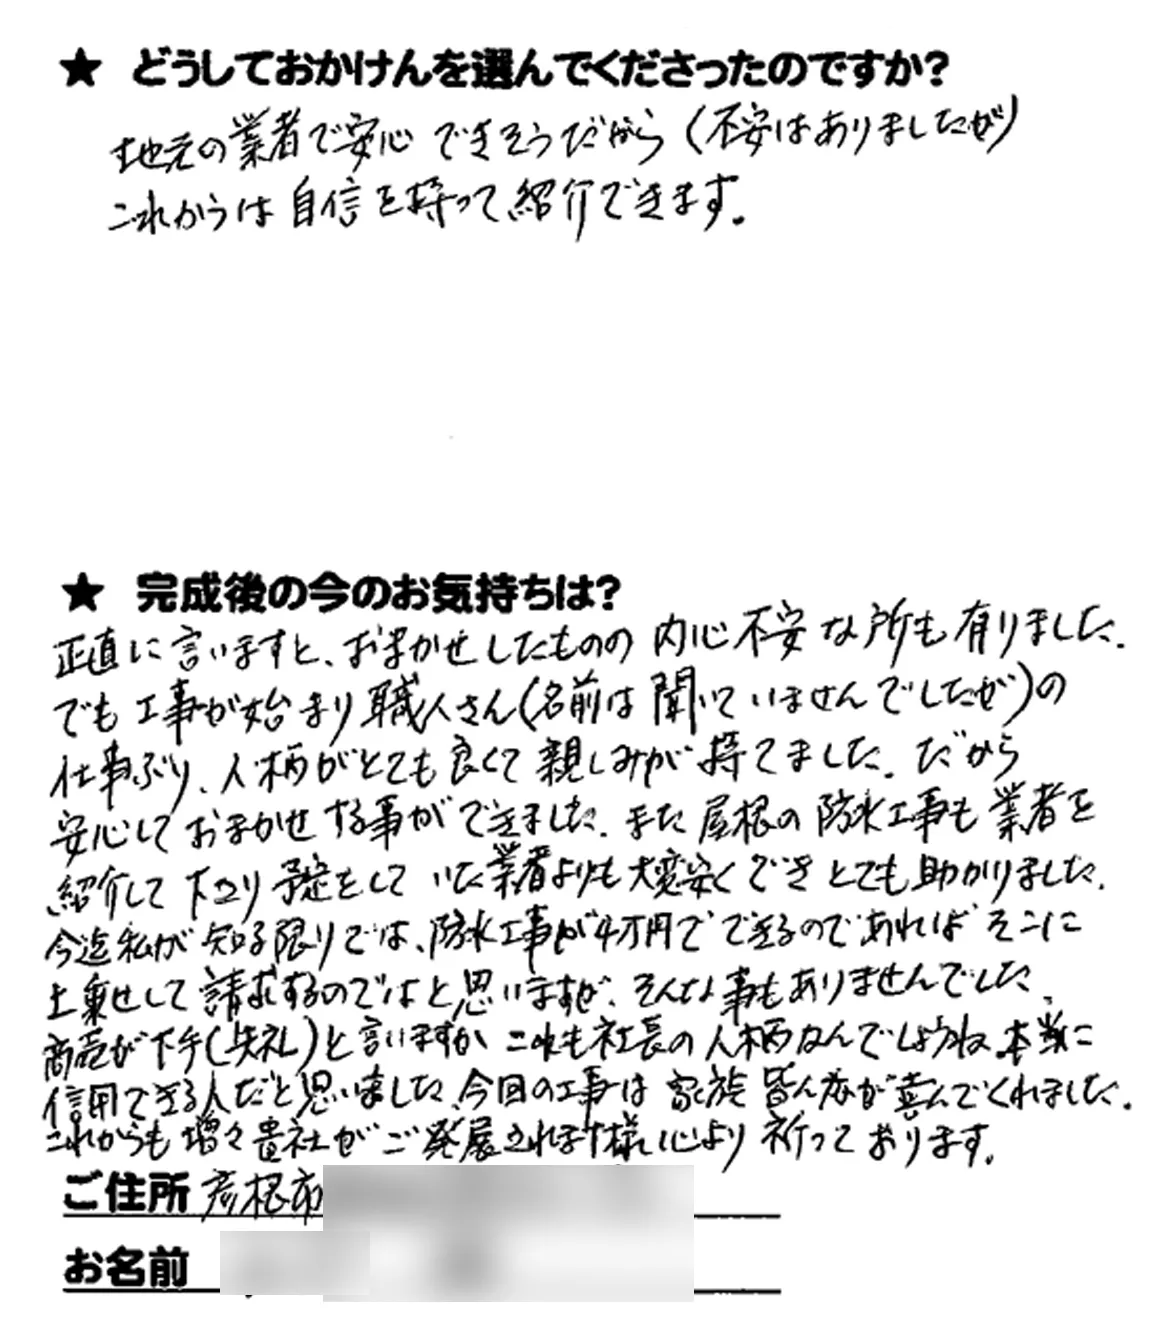 ★ どうしておかけんを選んでくださったのですか?
地元の業者で安心できそうだから(不安はありましたが)
これからは自信を持って紹介できます。
★ 完成後の今のお気持ちは?
正直に言いますと、おまかせしたものの内心不安な所も有りました。
でも工事が始まり職人さん(名前は聞いていませんでしたが)の
仕事ぶり、人柄がとても良くて親しみが持てました。だから
安心しておまかせする事ができました。また屋根の防水工事も業者を
紹介して下さり予定をしていた業者よりも大変安くできとても助かりました。
今迄私が知る限りでは、防水工事が4万円でできるのであればそこに
上乗せして請求するのではと思いますが、そんな事もありませんでした。
商売が下手(失礼)と言いますか これも社長の人柄なんでしょうね。本当に
信用できる人だと思いました。今回の工事は家族皆んなが喜んでくれました。
これからも増々貴社がご発展されます様に心より祈っております。
ご住所 彦根市
お名前